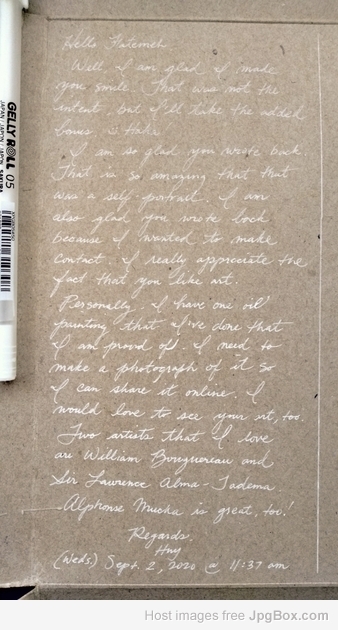 Hello Fatemeh
Well, I am glad I made
you smile. That was not the
intent, but I'll take the added
bonus, ha haha.
I am so glad you wrote back.
That is so amazing that that
was a self-portrait. I am
also glad you wrote back
because I wanted to make
contact. I really appreciate the
fact that you like art.
Personally, I have one oil
painting that I've done that
I am proud of. I need to
make a photograph of it so
I can share it online. I
would love to see your art, too.
Two artists that I love
are William Bouguereau and
Sir Lawrence Alma-Tadema.
Alphonse Mucha is great, too!
Regards,
(Weds.) Sept. 2, 2020 @ 11:37 am
GELLY ROLL 05
JAPAN / JAPON
SAKURA
Host images free JpgBox.com